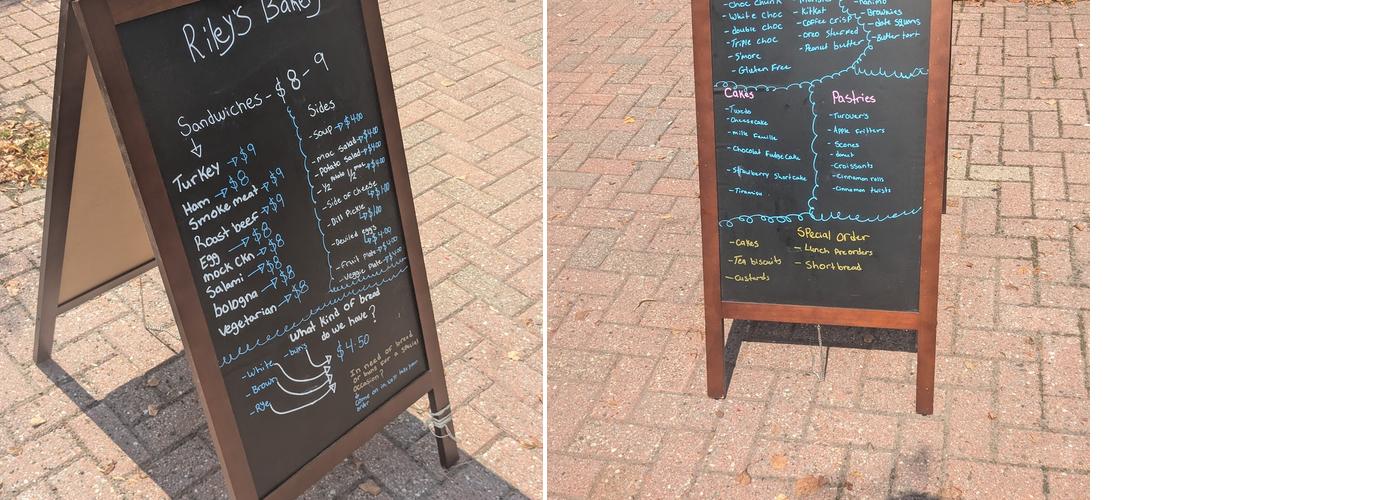 Riley's Bakery
Sandwiches - $8-9
Turkey → $9
Ham → $8
Smoke meat → $9
Roast beef → $9
Egg → $8
mock Ckn → $8
Salami → $8
bologna → $8
Vegetarian → $8
Sides
- Soup → $4.00
- mac salad → $4.00
- Potato salad → $4.00
- 1/2 Potato 1/2 mac → $4.00
- Side of Cheese → $1.00
- Dill Pickle → $1.00
- Deviled eggs → $4.00
- Fruit Plate → $4.00
- Veggie Plate → $4.00
What Kind of bread
do we have?
- White
- Brown
- Rye
- buns
$4.50
In need of bread
or buns for a special
occasion?
Come on in
order
- Choc Chunk
- White choc
- double choc
- Triple choc
- S'more
- Gluten Free
- Monster
- KitKat
- Coffee crisp
- Oreo stuffed
- Peanut butter
- nanimo
- Brownies
- date squares
- Butter tart
Cakes
- Tuxedo
- Cheesecake
- mille Feuille
- Chocolat Fudge Cake
- Strawberry Shortcake
- Tiramisu
Pastries
- Turovers
- Apple Fritters
- Scones
- donut
- Croissants
- Cinnamon rolls
- Cinnamon twists
Special Order
- Cakes
- Tea biscuits
- Custards
- Lunch Preorders
- Shortbread